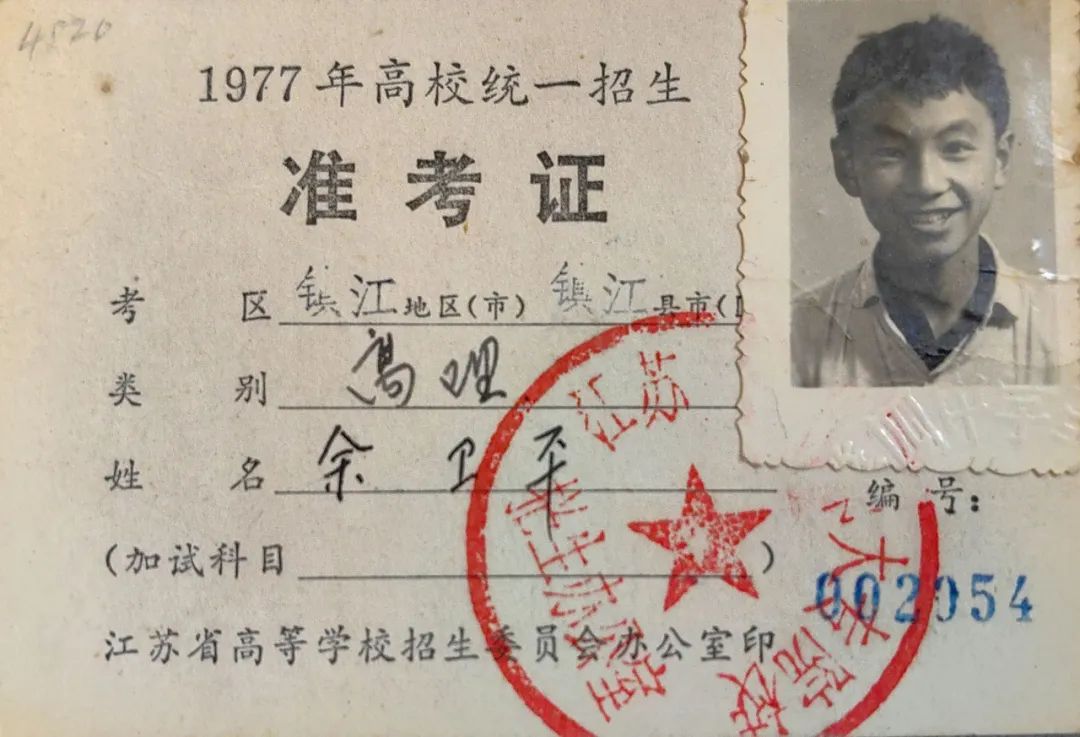 4820
1977年高校统一招生
准考证
考区 镇江地区(市) 镇江县市(
类别 高理
姓名 余卫平
编号:
(加试科目 )
002054
江苏省高等学校招生委员会办公室印
江苏